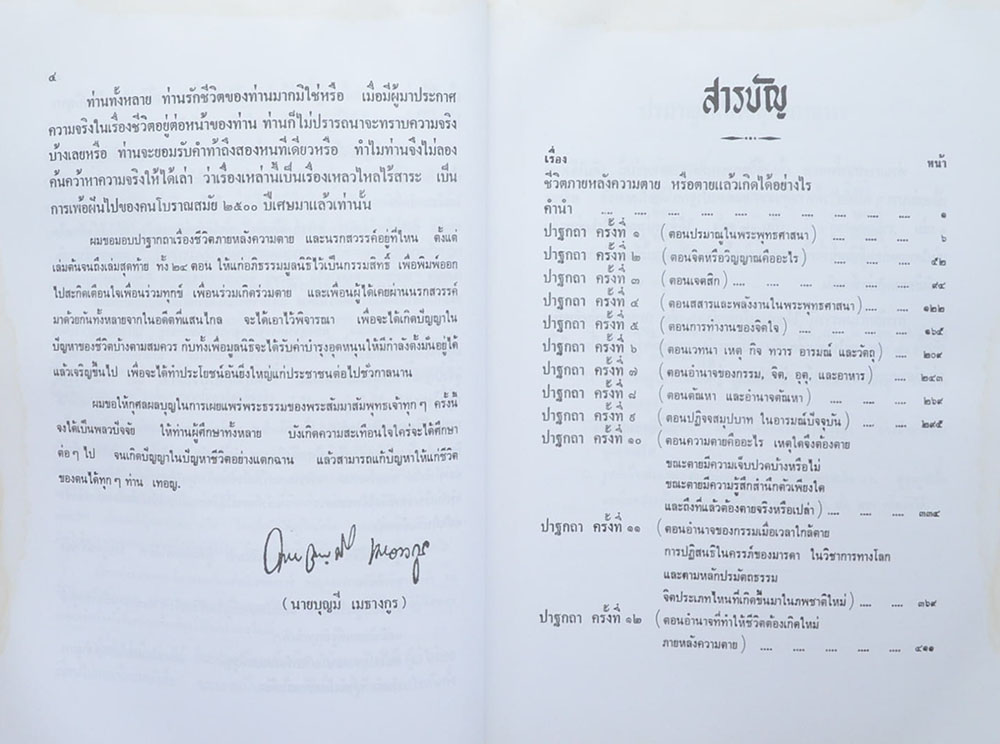 ๔
ท่านทั้งหลาย ท่านรักชีวิตของท่านมากมิใช่หรือ เมื่อมีผู้มาประกาศ
ความจริงในเรื่องชีวิตอยู่ต่อหน้าของท่าน ท่านก็ไม่ปรารถนาจะทราบความจริง
บ้างเลยหรือ ท่านจะยอมรับคำท้าถึงสองหนทีเดียวหรือ ทำไมท่านจึงไม่ลอง
ค้นคว้าหาความจริงให้ได้เล่า ว่าเรื่องเหล่านี้เป็นเรื่องเหลวไหลไร้สาระ เป็น
การเพ้อฝันไปของคนโบราณสมัย ๒๕๐๐ ปีเศษมาแล้วเท่านั้น
ผมขอมอบปาฐกถาเรื่องชีวิตภายหลังความตาย และนรกสวรรค์อยู่ที่ไหน ตั้งแต่
เล่มต้นจนถึงเล่มสุดท้าย ทั้ง ๒๔ ตอน ให้แก่อภิธรรมมูลนิธิไว้เป็นกรรมสิทธิ์ เพื่อพิมพ์ออก
ไปสะกิดเตือนใจเพื่อนร่วมทุกข์ เพื่อนร่วมเกิดร่วมตาย และเพื่อนผู้ได้เคยผ่านนรกสวรรค์
มาด้วยกันทั้งหลายจากในอดีตที่แสนไกล จะได้เอาไว้พิจารณา เพื่อจะได้เกิดปัญญาใน
ปัญหาของชีวิตบ้างตามสมควร กับทั้งเพื่อมูลนิธิจะได้รับค่าบำรุงอุดหนุนให้มีกำลังตั้งมั่นอยู่ได้
แล้วเจริญขึ้นไป เพื่อจะได้ทำประโยชน์อันยิ่งใหญ่แก่ประชาชนต่อไปชั่วกาลนาน
ผมขอให้กุศลผลบุญในการเผยแพร่พระธรรมของพระสัมมาสัมพุทธเจ้าทุก ๆ ครั้งนี้
จงได้เป็นพลวปัจจัย ให้ท่านผู้ศึกษาทั้งหลาย บังเกิดความสะเทือนใจใคร่จะได้ศึกษา
ต่อ ๆ ไป จนเกิดปัญญาในปัญหาชีวิตอย่างแตกฉาน แล้วสามารถแก้ปัญหาให้แก่ชีวิต
ของตนได้ทุก ๆ ท่าน เทอญ.
(นายบุญมี เมธางกูร)
สารบัญ
เรื่อง หน้า
ชีวิตภายหลังความตาย หรือตายแล้วเกิดได้อย่างไร
คำนำ .... .... .... .... .... .... .... .... ๑
ปาฐกถา ครั้งที่ ๑ (ตอนปรมาณูในพระพุทธศาสนา) .... .... .... ๖
ปาฐกถา ครั้งที่ ๒ (ตอนจิตหรือวิญญาณคืออะไร) .... .... ๕๒
ปาฐกถา ครั้งที่ ๓ (ตอนเจตสิก) .... .... .... .... .... ๙๔
ปาฐกถา ครั้งที่ ๔ (ตอนสสารและพลังงานในพระพุทธศาสนา) .... .... ๑๒๒
ปาฐกถา ครั้งที่ ๕ (ตอนการทำงานของจิตใจ) .... .... .... ๑๖๕
ปาฐกถา ครั้งที่ ๖ (ตอนเวทนา เหตุ กิจ ทวาร อารมณ์ และวัตถุ) .... ๒๐๙
ปาฐกถา ครั้งที่ ๗ (ตอนอำนาจของกรรม, จิต, อุตุ, และอาหาร) .... ๒๔๓
ปาฐกถา ครั้งที่ ๘ (ตอนตัณหา และอำนาจตัณหา) .... .... ๒๖๙
ปาฐกถา ครั้งที่ ๙ (ตอนปฏิจจสมุปบาท ในอารมณ์ปัจจุบัน) .... .... ๒๙๕
ปาฐกถา ครั้งที่ ๑๐ (ตอนความตายคืออะไร เหตุใดจึงต้องตาย
ขณะตายมีความเจ็บปวดบ้างหรือไม่
ขณะตายมีความรู้สึกสำนึกตัวเพียงใด
และถึงที่แล้วต้องตายจริงหรือเปล่า) .... .... .... ๓๓๔
ปาฐกถา ครั้งที่ ๑๑ (ตอนอำนาจของกรรมเมื่อเวลาใกล้ตาย
การปฏิสนธิในครรภ์ของมารดา ในวิชาการทางโลก
และตามหลักปรมัตถธรรม
จิตประเภทไหนที่เกิดขึ้นมาในภพชาติใหม่) .... .... ๓๖๙
ปาฐกถา ครั้งที่ ๑๒ (ตอนอำนาจที่ทำให้ชีวิตต้องเกิดใหม่
ภายหลังความตาย) .... .... .... .... .... ๔๑๑